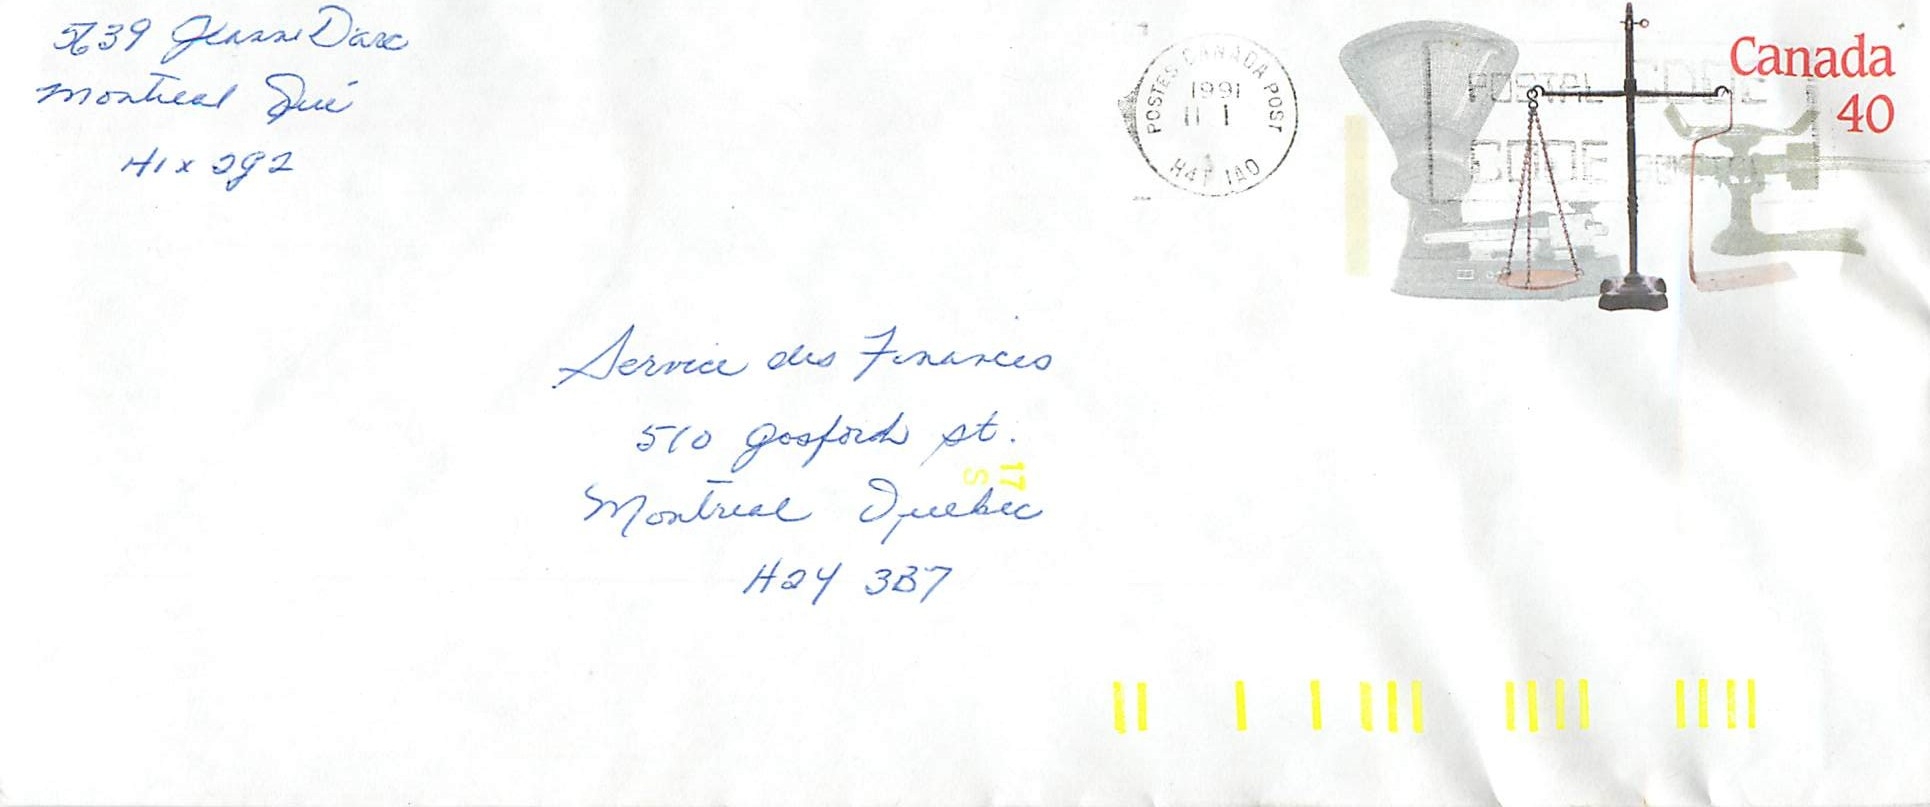 5639 Jeanne Darc
Montreal Qué
H1x 2g2
POSTES CANADA POST
1991
11 1
H4T 1A0
POSTAL CODE
CODE POSTAL
Canada
40
Service des Finances
510 gosford st.
17
S
Montreal Quebec
H2Y 3B7